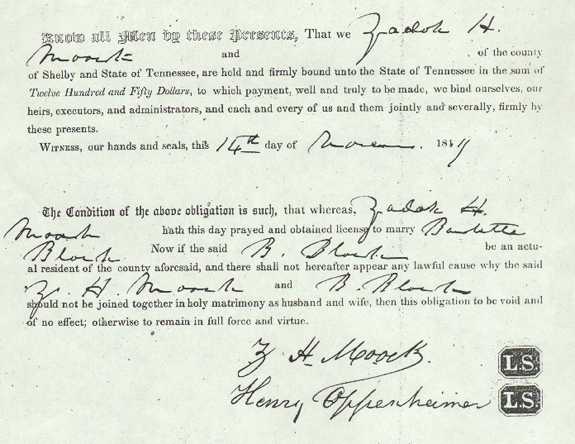 Know all Men by these Presents, That we Zadok H.
Moock and of the county
of Shelby and State of Tennessee, are held and firmly bound unto the State of Tennessee in the sum of
Twelve Hundred and Fifty Dollars, to which payment, well and truly to be made, we bind ourselves, our
heirs, executors, and administrators, and each and every of us and them jointly and severally, firmly by
these presents.
WITNESS, our hands and seals, this 14th day of 18
The Condition of the above obligation is such, that whereas, Zadok H.
Moock hath this day prayed and obtained license to marry
Block Now if the said B. Block be an actu-
al resident of the county aforesaid, and there shall not hereafter appear any lawful cause why the said
Z. H. Moock and B. Block
should not be joined together in holy matrimony as husband and wife, then this obligation to be void and
of no effect; otherwise to remain in full force and virtue.
Z H Moock. L.S.
Henry Oppenheimer L.S.